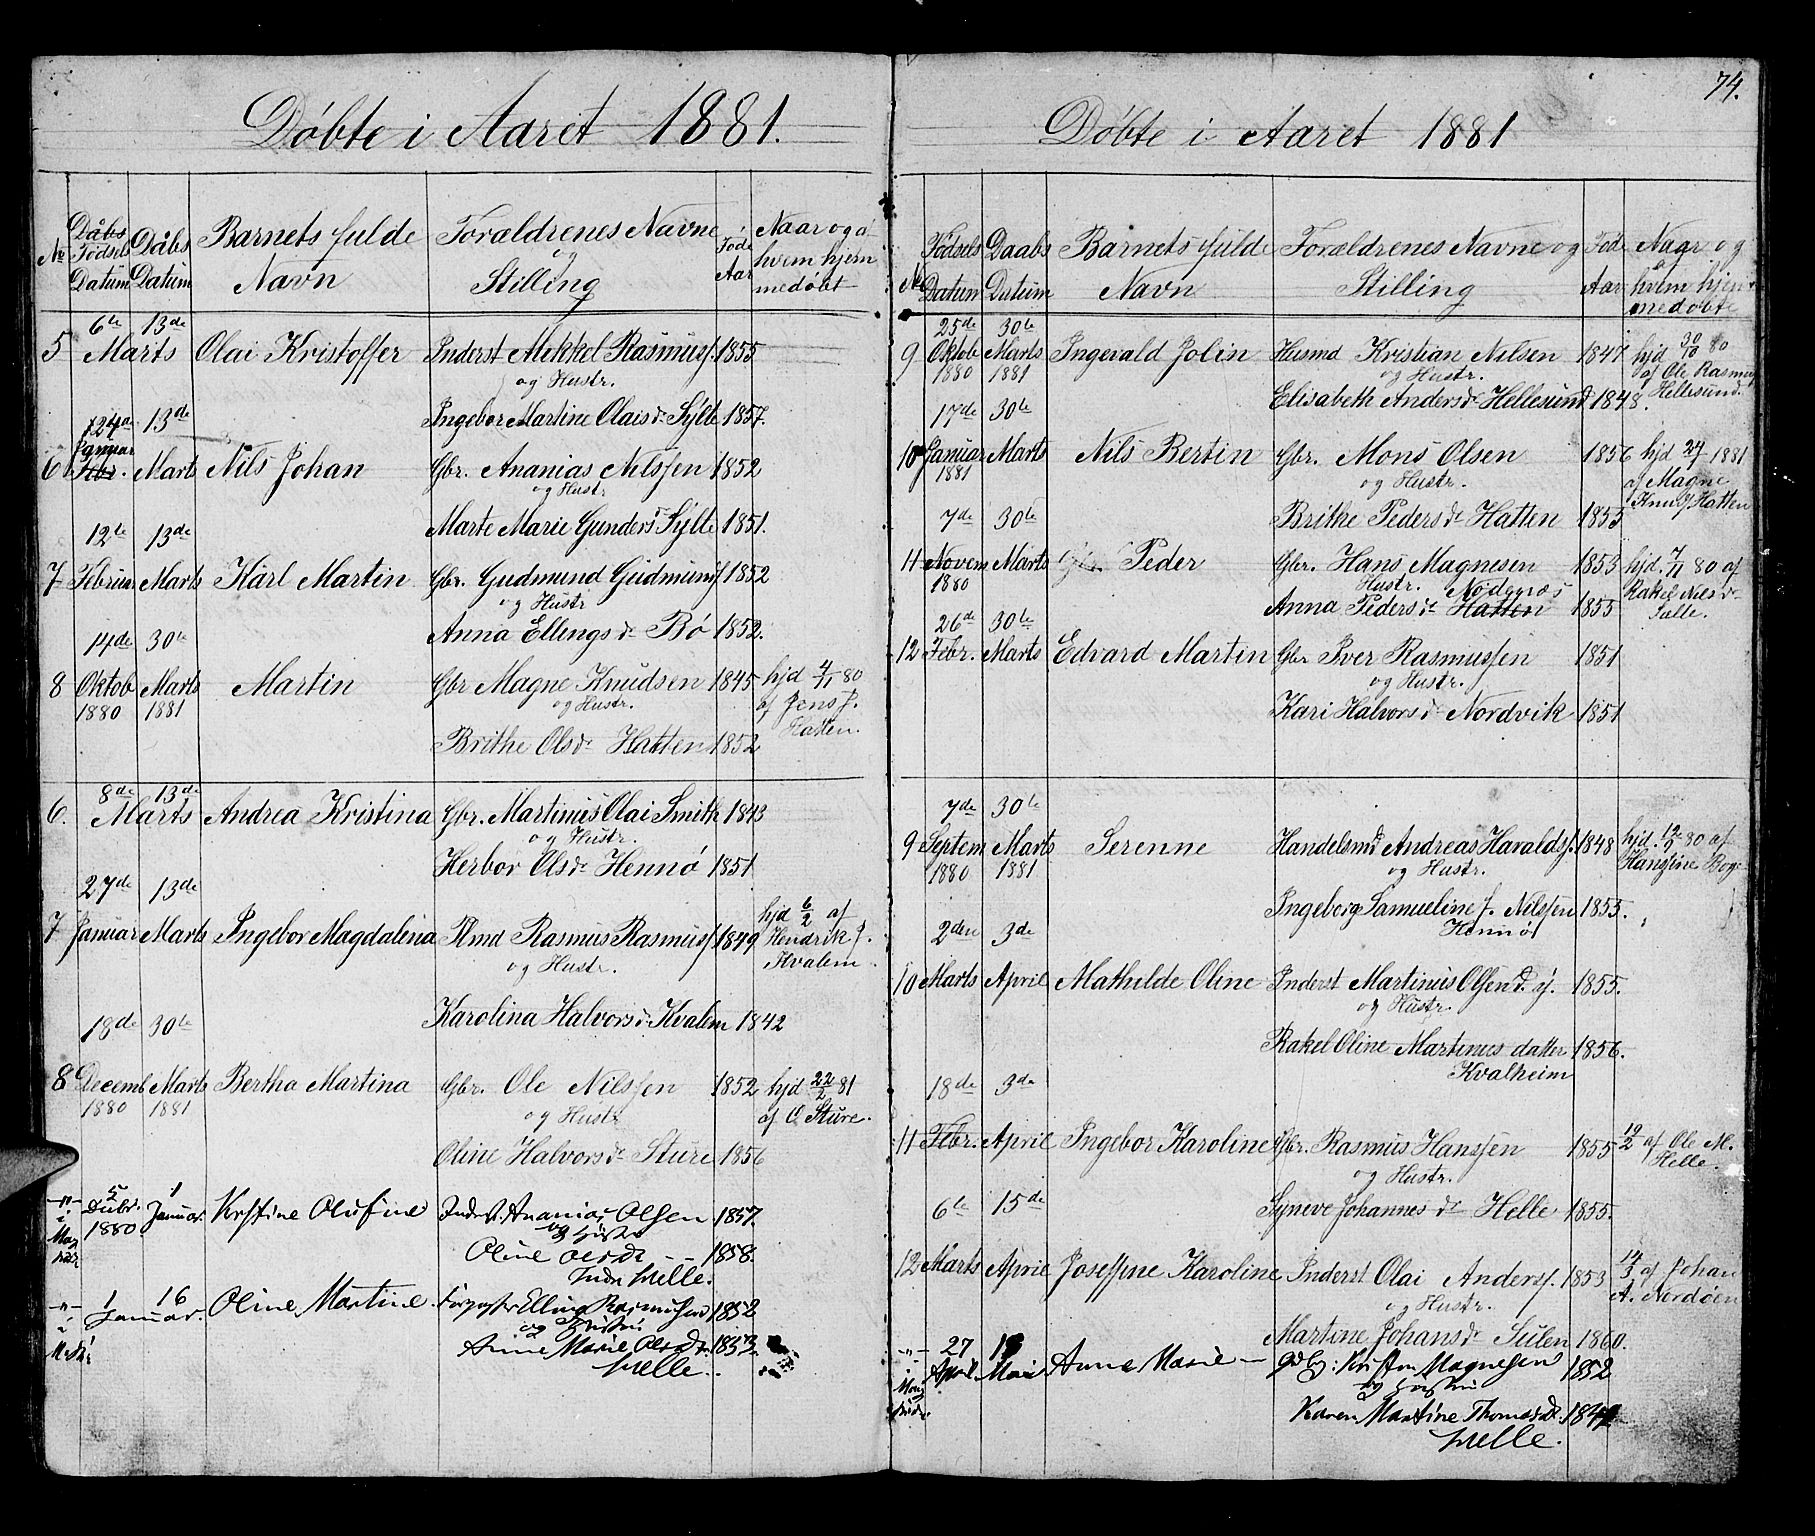 Døbte i Aaret 1881.
No Dåbs Fødsels Datum Dåbs Datum Barnets fulde Navn Forældrenes Navne og Stilling Føde Aar Naar og af hvem hjemmedøbt
6te 13de
5 Marts Olai Kristoffer Inderst Mekkel Rasmuss. 1855
og Hustr.
Ingebor Martine Olaisdr Sylte 1857.
24de 13de
Januar
6 Febr. Marts Nils Johan Gbr. Ananias Nilssen 1852
og Hustr
Marte Marie Gundersdr Sylte 1851.
12te 13de
7 Februar Marts Karl Martin Gbr. Gudmund Gudmunds 1852
og Hustr
Anna Ellingsdr Bø 1852.
14de 30te
8 Oktob Marts Martin Gbr Magne Knudsen 1845 hjd 4/11 80
1880 1881 og Hustr. af Jens J.
Brithe Olsdr Hatten 1852 Hatten.
8de 13de
6. Marts Andrea Kristina Gbr. Martinus Olai Smith 1843
og Hustr.
Herbor Olsdr Hennø 1851
27de 13de
7 Januar Marts Ingebor Magdalena Plmd Rasmus Rasmuss 1849 hjd 6/2 af
og Hustr. Hendrik J.
Kvalem
Karolina Halvorsdr Kvalem 1842
18de 30te
8 Decemb Marts Bertha Martina Gbr. Ole Nilssen 1852 hjd 22/2 81
1880 1881 og Hustr af O Sture.
Oline Halvorsdr Sture 1856
-"- 5 1
i Decbr. Januar. Krstine Olufine Inderst. Ananias Olsen 1857.
1880. og Hustr
Oline Olsdr - - 1858.
Indre Helle.
-"- 1 16
i Januar. Oline Martine. Elling Rasmussen 1852
og Hustru
Anne Marie Olsdr. 1853.
Helle.
74.
Døbte i Aaret 1881
No Fødsels Datum Daabs Datum Barnets fulde Navn Forældrenes Navne og Stilling Fød Aar Naar og af hvem hjemmedøbte
25de 30te
9 Oktob Marts Ingevald Jolin Husmd Kristian Nilsen 1847 hjd 30/10 80
1880 1881 og Hustr. af Ole Rasmus
Elisabeth Andersdr Hellesund 1848. Hellesund.
17de 30te
10 Januar Marts Nils Bertin Gbr. Mons Olsen 1856 hjd 1881
1881 og Hustr. af Magne
Knuds Hatten
Brithe Pedersdr Hatten 1855
7de 30te
11 Novem Marts Peder Gbr. Hans Magnesen 1853 hjd. 7/11 80 af
1880 Hustr. Nødgnæs Rakel Nilsdr
Anna Pedersdr Hatten 1855 Salle.
26de 30te
12 Febr. Marts Edvard Martin Gbr Iver Rasmussen 1851
og Hustr.
Kari Halvorsdr Nordvik 1851
7de 30te
9 Septem Marts Serenne Handelsmd Andreas Haralds. 1848 hjd. 12/9 80 af
1880 1881 og Hustr. Hansine Bog
Ingeborg Samueline f. Nilssen 1855.
Hennø
2den 3de
10 Marts April Mathilde Oline Inderst Martinus Olsen d. y. 1855.
og Hustr.
Rakel Oline Martinus datter 1856.
Kvalheim
18de 3de
11 Febr. April Ingebor Karoline Gbr. Rasmus Hanssen 1855 19/2 af Ole M.
og Hustr. Helle.
Syneve Johannesdr Helle 1855.
6te 15de
12 Marts April Joseffine Karoline Inderst Olai Anders. 1853 14/3 af Johan
og Hustr. A. Nordøen
Martine Johansdr Sulen 1860.
-"- 27
i April Mai Anne Marie - Gdbg: Kristen Magnesen 1852
og Hustru
Karen Martine Thomasdr. 1847
Helle.